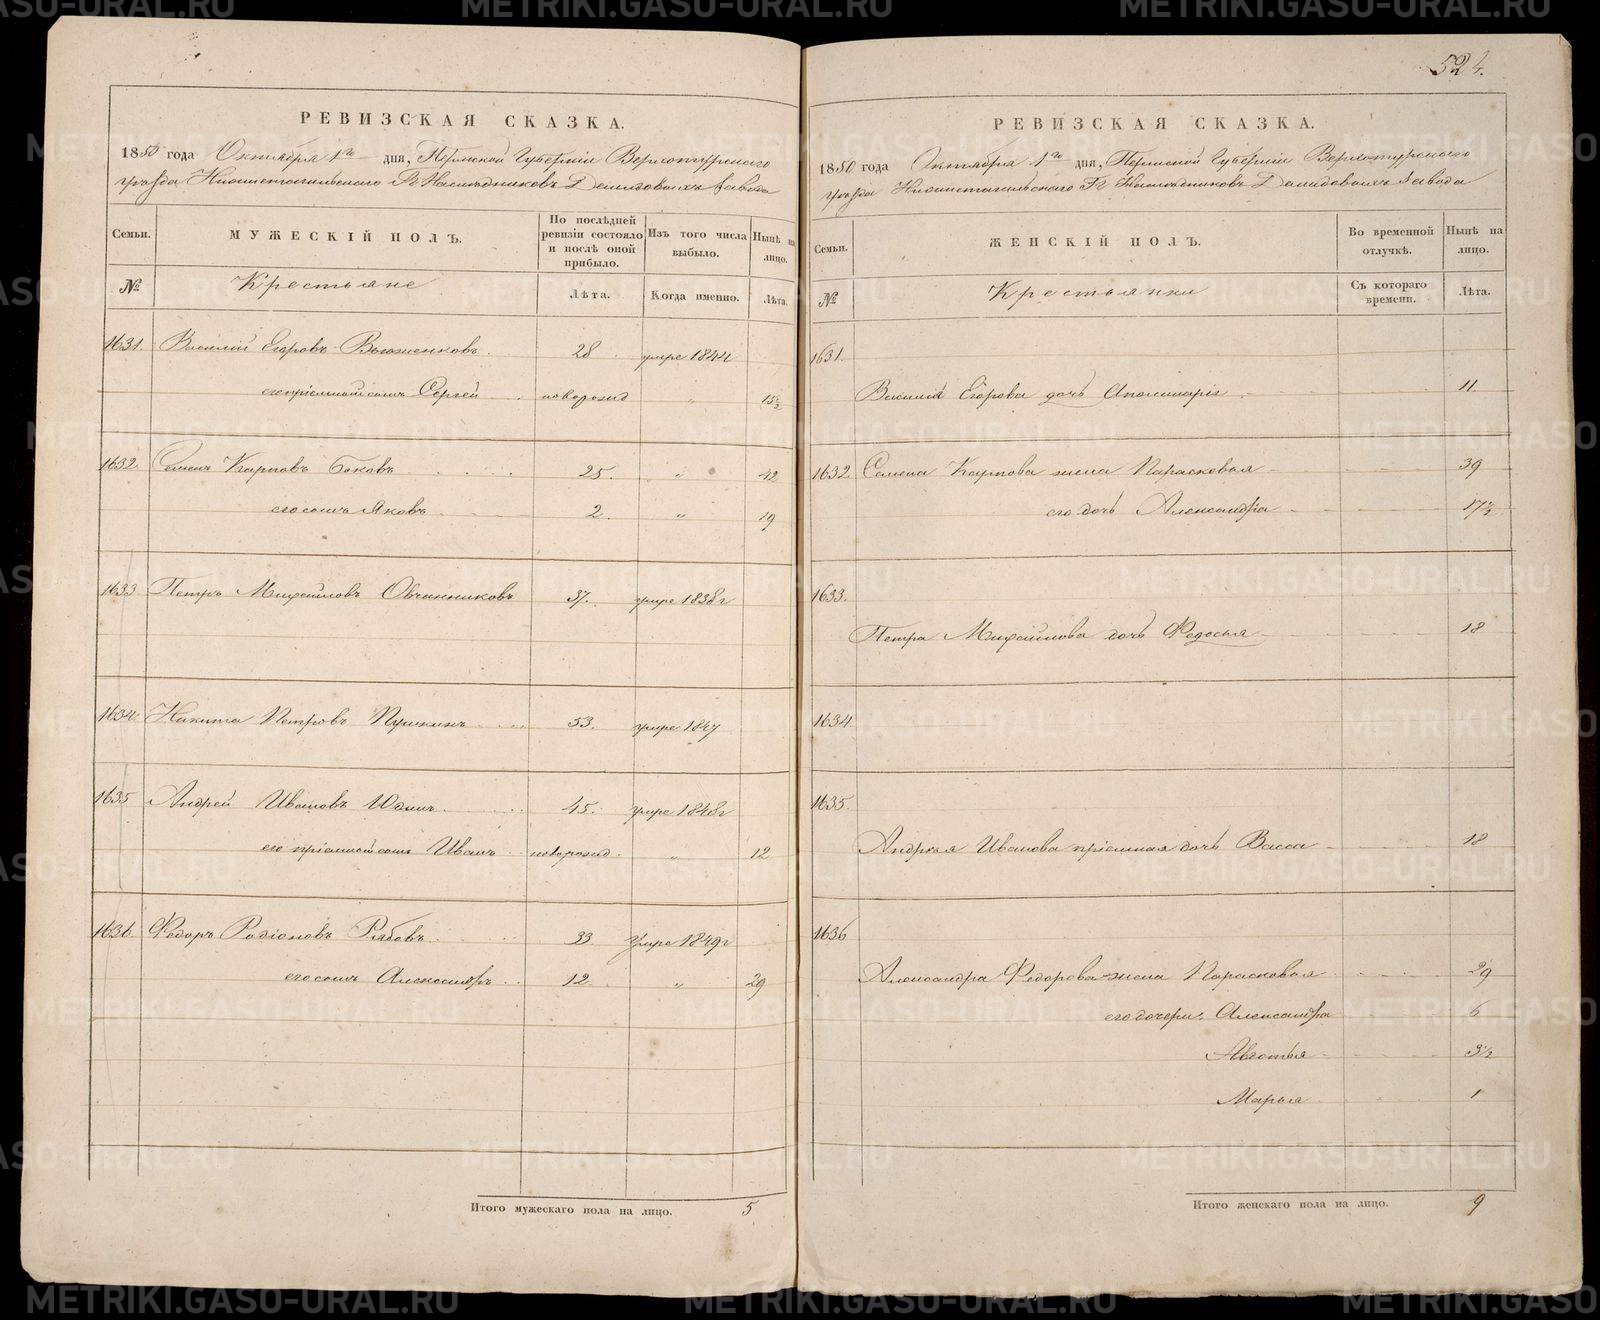 524.
РЕВИЗСКАЯ СКАЗКА.
1850 года Октября 1го дня, Пермской Губернии Верхотурскаго
уезда Нижнетагильскаго Гг Наследниковъ Демидовыхъ завода
Семьи. МУЖЕСКІЙ ПОЛЪ. По послѣдней ревизіи состояло и послѣ оной прибыло. Изъ того числа выбыло. Нынѣ на лицо.
№ Крестьяне Лѣта. Когда именно. Лѣта.
1631. Василий Егоровъ 28 умре 1844
его приемной сынъ Сергей новорожд " 15½
1632. Семенъ Карповъ Боковъ 25. " 42
его сынъ Яковъ 2. " 19
1633 Петръ Михайловъ Овчинниковъ 37. умре 1838г
1634. Никита Петровъ Пушкинъ 53. умре 1847
1635 Андрей Ивановъ Юдинъ 45. умре 1848г
его приемной сынъ Иванъ новорожд. " 12
1636. Федоръ Родіоновъ Рябовъ 33 умре 1849г
его сынъ Александръ 12. " 29
Итого мужескаго пола на лицо. 5
РЕВИЗСКАЯ СКАЗКА.
1850 года Октября 1го дня, Пермской Губерніи Верхотурскаго
уезда Нижнетагильскаго Гг Наследниковъ Демидовыхъ завода
Семьи. ЖЕНСКІЙ ПОЛЪ. Во временной отлучкѣ. Нынѣ на лицо.
№ Крестьянки Съ котораго времени. Лѣта.
1631.
Василия Егорова дочь Аполинария 11
1632 Семена Карпова жена Парасковья 39
его дочь Александра 17½
1633.
Петра Михайлова дочь Федосья 18
1634
1635.
Андрея Иванова пріемная дочь Васса 18
1636
Александра Федорова жена Парасковья 29
его дочери: Александра 6
Авдотья 3½
Марья 1
Итого женскаго пола на лицо. 9
METRIKI.GASO-URAL.RU